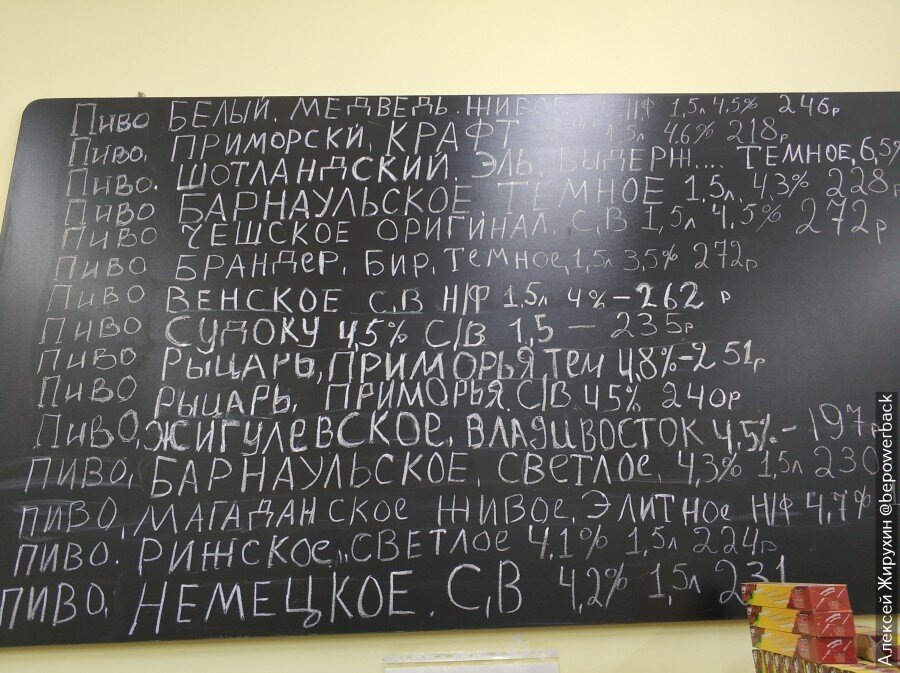 Пиво БЕЛЫЙ. МЕДВЕДЬ. ЖИВОЕ Н/Ф 1,5л 4.5% 246р
Пиво. ПРИМОРСКИ. КРАФТ 1,5л 4.6% 218р
Пиво. ШОТЛАНДСКИЙ. ЭЛЬ. ВЫДЕРЖ.... ТЕМНОЕ, 6,5%
Пиво БАРНАУЛЬСКОЕ ТЕМНОЕ 1,5л. 4,3% 228р
Пиво ЧЕШСКОЕ ОРИГИНАЛ. С,В 1,5л 4,5% 272р
Пиво БРАНДЕР. БИР. ТЕМНОЕ, 1,5л 3,5% 272р
Пиво ВЕНСКОЕ С.В Н/Ф 1,5л 4% - 262 р
Пиво СУДОКУ 4,5% С/В 1,5 - 235р
Пиво РЫЦАРЬ, ПРИМОРЬЯ, ТЕМ 4,8% - 251р
Пиво РЫЦАРЬ, ПРИМОРЬЯ. С/В 45% 240р
Пиво, ЖИГУЛЕВСКОЕ. ВЛАДИВОСТОК 4,5% - 197р
ПИВО, БАРНАУЛЬСКОЕ, СВЕТЛОЕ. 4,3% 1,5л 230
ПИВО, МАГАДАНСКОЕ ЖИВОЕ, ЭЛИТНОЕ Н/Ф 4,7%
ПИВО. РИЖСКОЕ, СВЕТЛОЕ 4,1% 1,5л 224р
ПИВО, НЕМЕЦКОЕ. С,В 4,2% 1,5л 231
Алексей Жирухин @bepowerback